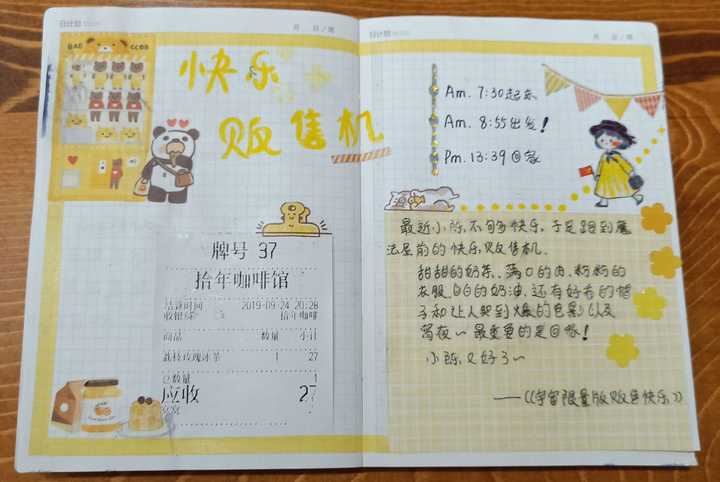 日计划
月 日/周
BAO
快乐
贩售机
牌号 37
拾年咖啡馆
结账时间 2019-09-24 20:28
收银员 拾年咖啡
商品 数量 小计
荔枝玫瑰冰茶 1 27
总数量 1
应收 27
日计划
月 日/周
Am. 7:30起床
Am. 8:55出发!
Pm. 13:39回家
最近小陈不够快乐,于是跑到魔
法屋前的快乐贩售机.
甜甜的奶茶、满口的肉、粉粉的
衣服、白白的奶油、还有好看的帽
子和让人哭到爆的电影以及
宵夜~最重要的是回家!
小陈又好了~
——《宇宙限量版贩售快乐》